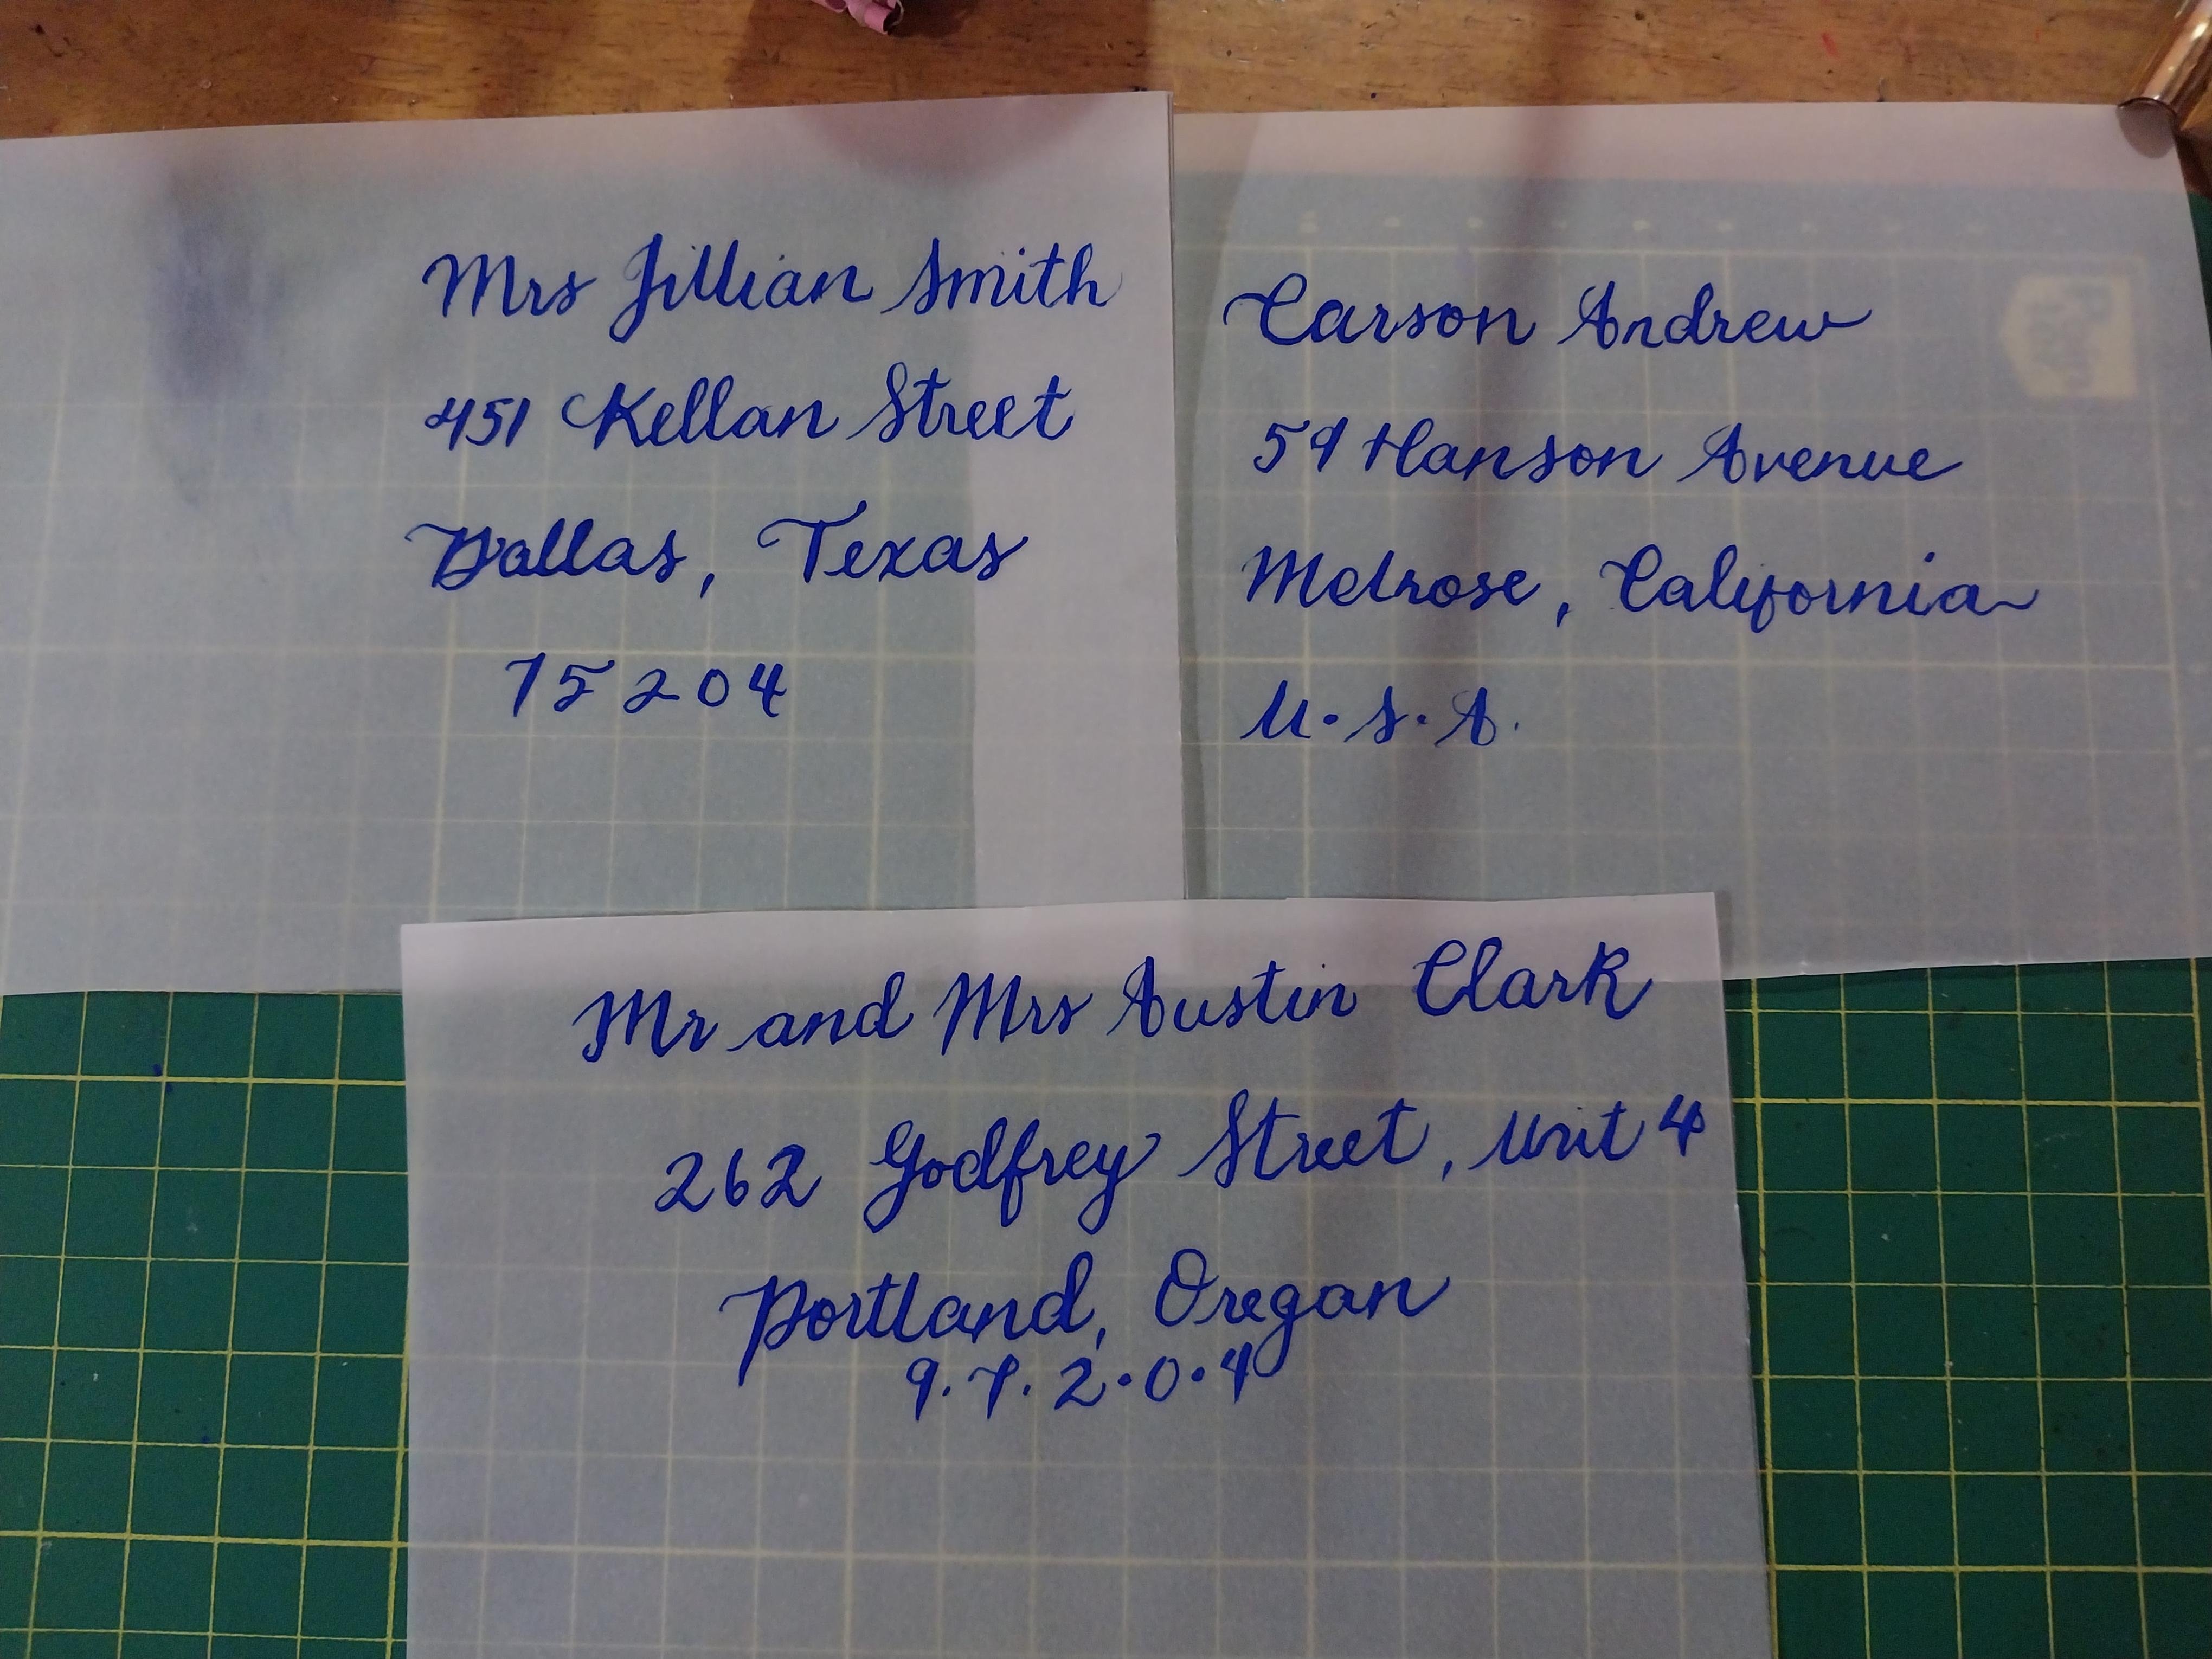 Mrs Jillian Smith
451 Kellan Street
Dallas, Texas
75204
Carson Andrew
59 Hanson Avenue
Melrose, California
U.S.A.
Mr and Mrs Austin Clark
262 Godfrey Street, Unit 4
Portland, Oregan
9.7.2.0.4